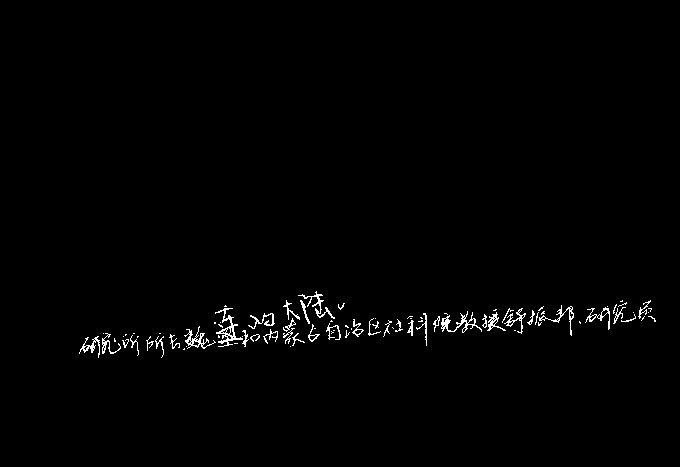 大陆。
研究所所长魏和内蒙古自治区社科院教授舒振邦、研究员